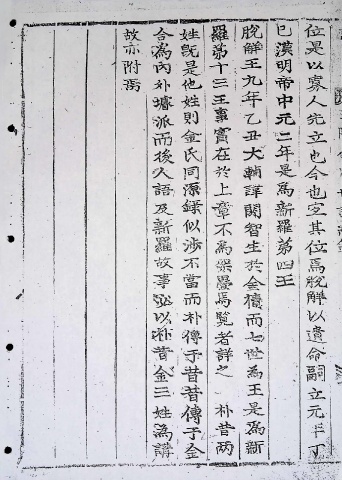 位是以寡人先立也今也空其位爲脫解以遺命嗣立元年丁
巳漢明帝中元二年是爲新羅第四王
脫解王九年乙丑大輔諱閼智生於金櫝而七世爲王是爲新
羅第十三王事實在於上章不爲架疊焉覽者詳之 朴昔兩
姓旣是他姓則金氏同源錄似涉不當而朴傳于昔昔傳于金
合爲內外壻派而後人語及新羅故事必以朴昔金三姓爲講
故亦附焉